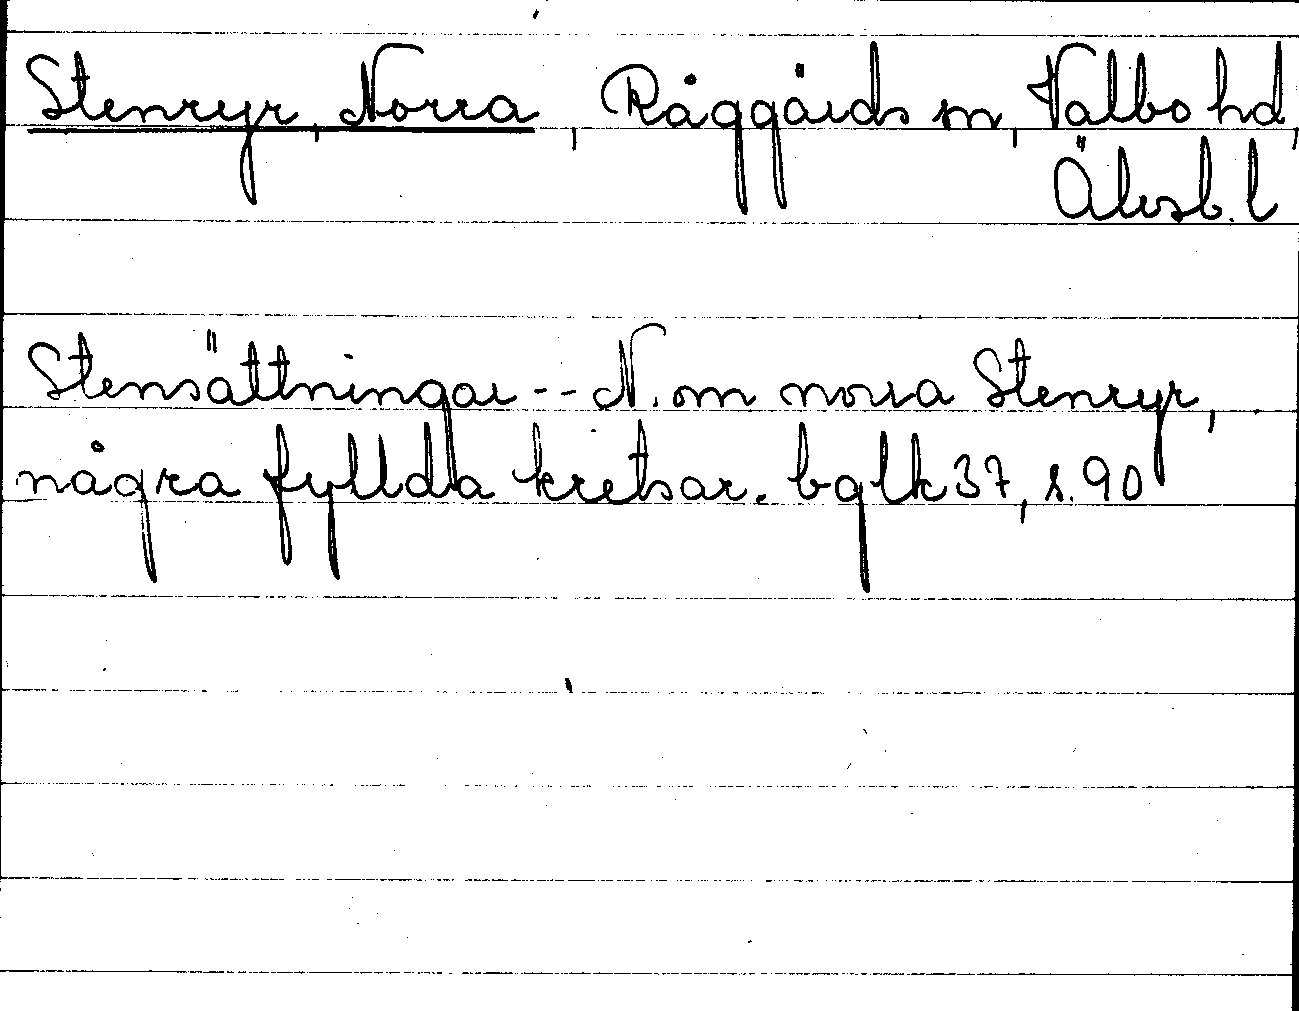 Stenryr, Norra, Råggärds sn, Valbo hd,
Älvsb. l
Stensättningar -- N. om norra Stenryr,
några fyllda kretsar. bglk 37, s. 90